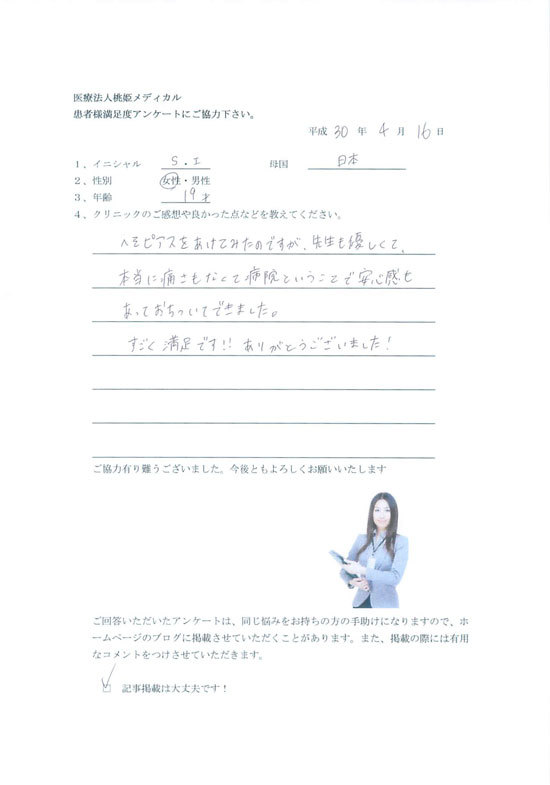 医療法人桃姫メディカル
患者様満足度アンケートにご協力下さい。
平成 30 年 4 月 16 日
1、イニシャル S.I 母国 日本
2、性別 女性・男性
3、年齢 19才
4、クリニックのご感想や良かった点などを教えてください。
へそピアスをあけてみたのですが、先生も優しくて、
本当に痛さもなくて病院ということで安心感も
あっておちついてできました。
すごく満足です!! ありがとうございました!
ご協力有り難うございました。今後ともよろしくお願いいたします
ご回答いただいたアンケートは、同じ悩みをお持ちの方の手助けになりますので、ホ
ームページのブログに掲載させていただくことがあります。また、掲載の際には有用
なコメントをつけさせていただきます。
記事掲載は大丈夫です！